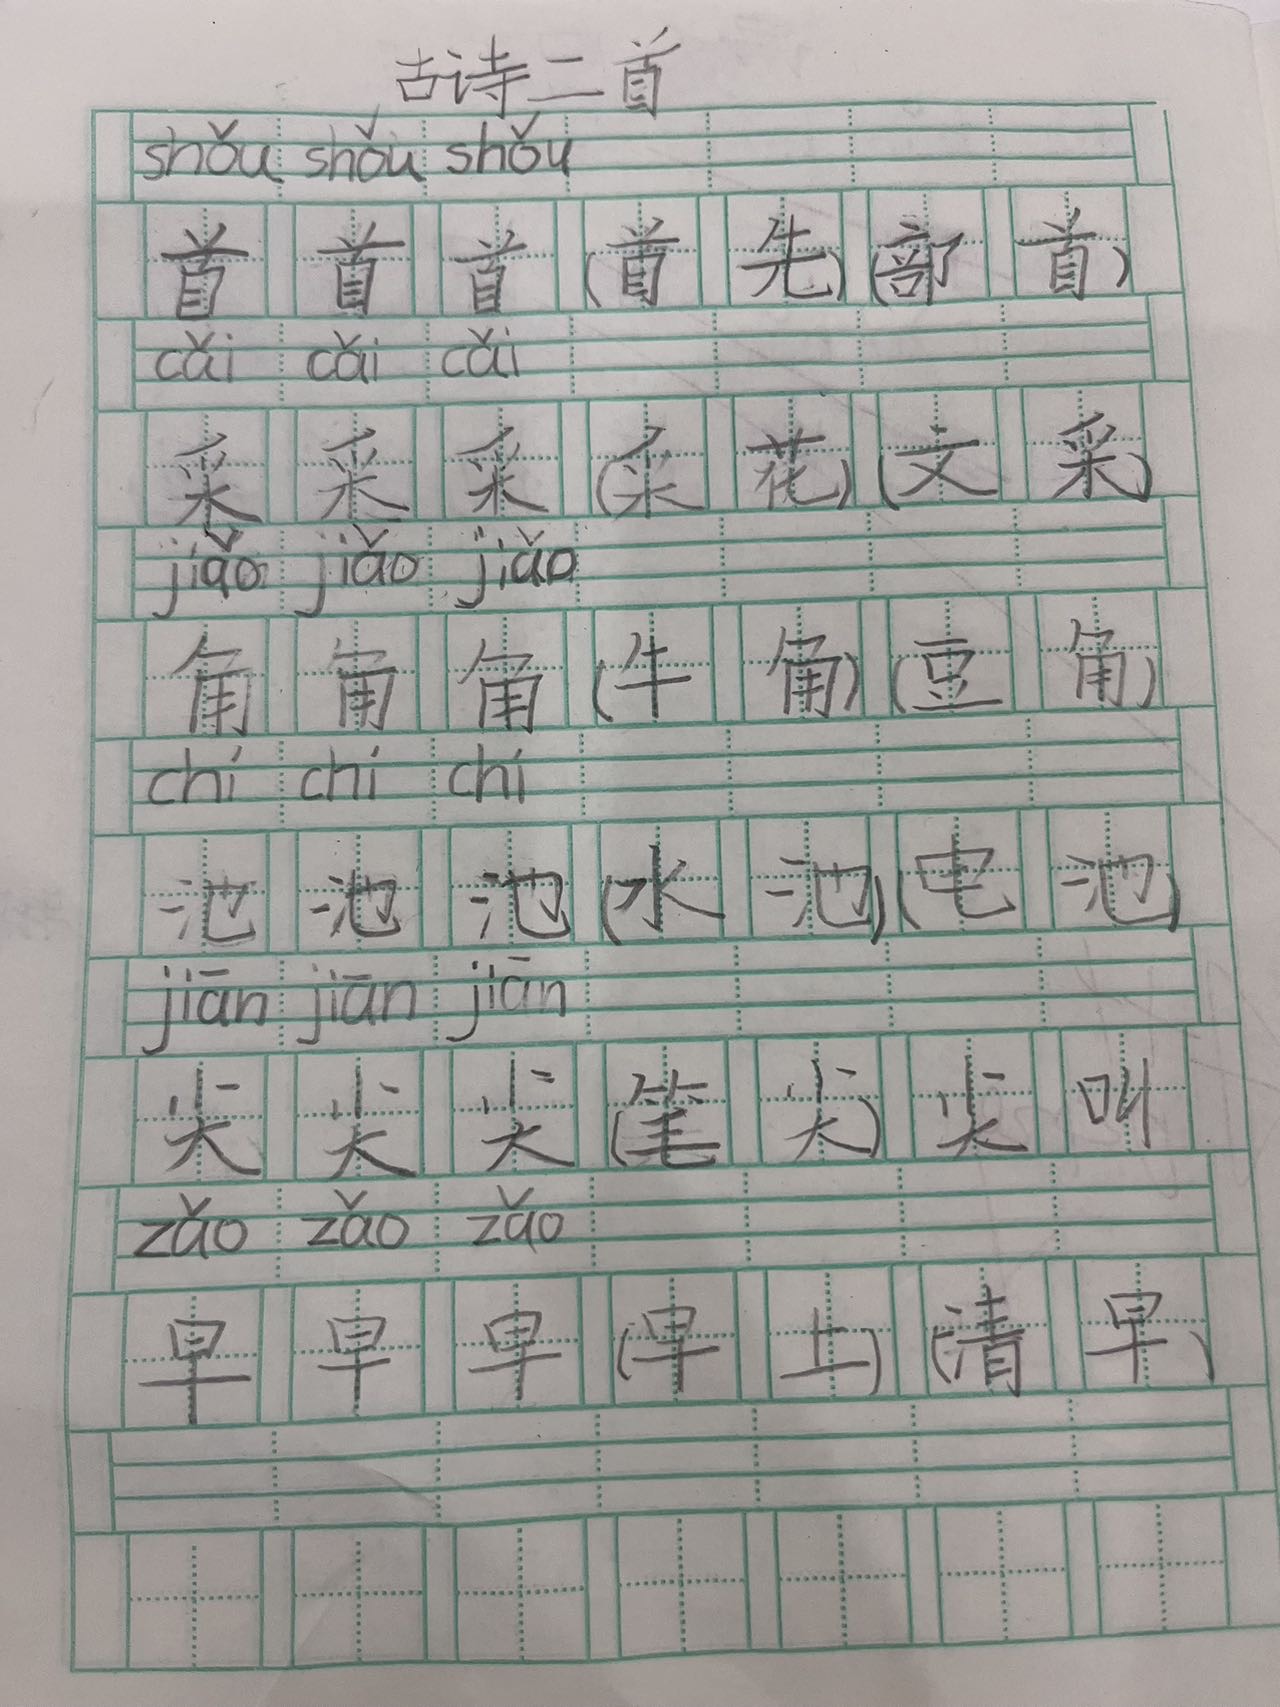 古诗二首
shǒu shǒu shǒu
首 首 首 (首 先) (部 首)
cǎi cǎi cǎi
采 采 采 (采 花) (文 采)
jiǎo jiǎo jiǎo
角 角 角 (牛 角) (豆 角)
chí chí chí
池 池 池 (水 池) (电 池)
jiān jiān jiān
尖 尖 尖 (笔 尖) 尖 叫
zǎo zǎo zǎo
早 早 早 (早 上) (清 早)